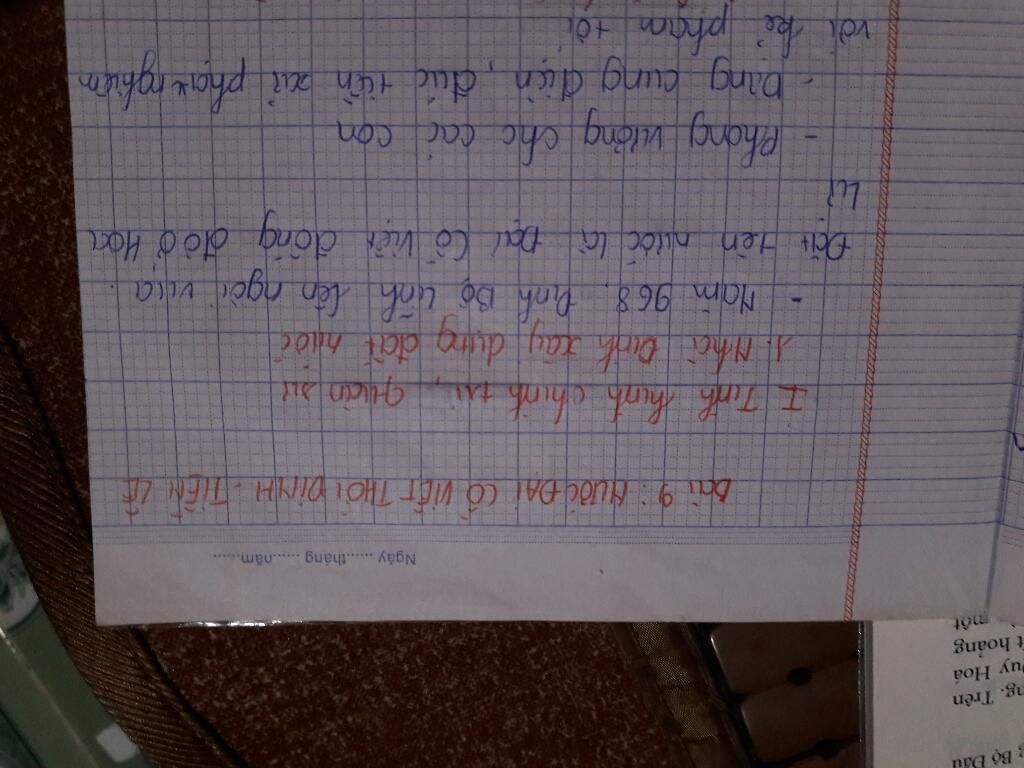 Ngày ...... tháng ...... năm......
Bài 9: NƯỚC ĐẠI CỒ VIỆT THỜI ĐINH - TIỀN LÊ
I Tình hình chính trị, quân sự
1. Nhà Đinh xây dựng đất nước
- Năm 968. Đinh Bộ Lĩnh lên ngôi vua.
Đặt tên nước là Đại Cồ Việt đóng đô ở Hoa
Lư
- Phong vương cho các con
- Dựng cung điện, đúc tiền xử phạt nghiêm
với kẻ phạm tội
g Bộ Đầu
ng. Trên
Duy Hoá
t hoảng
một